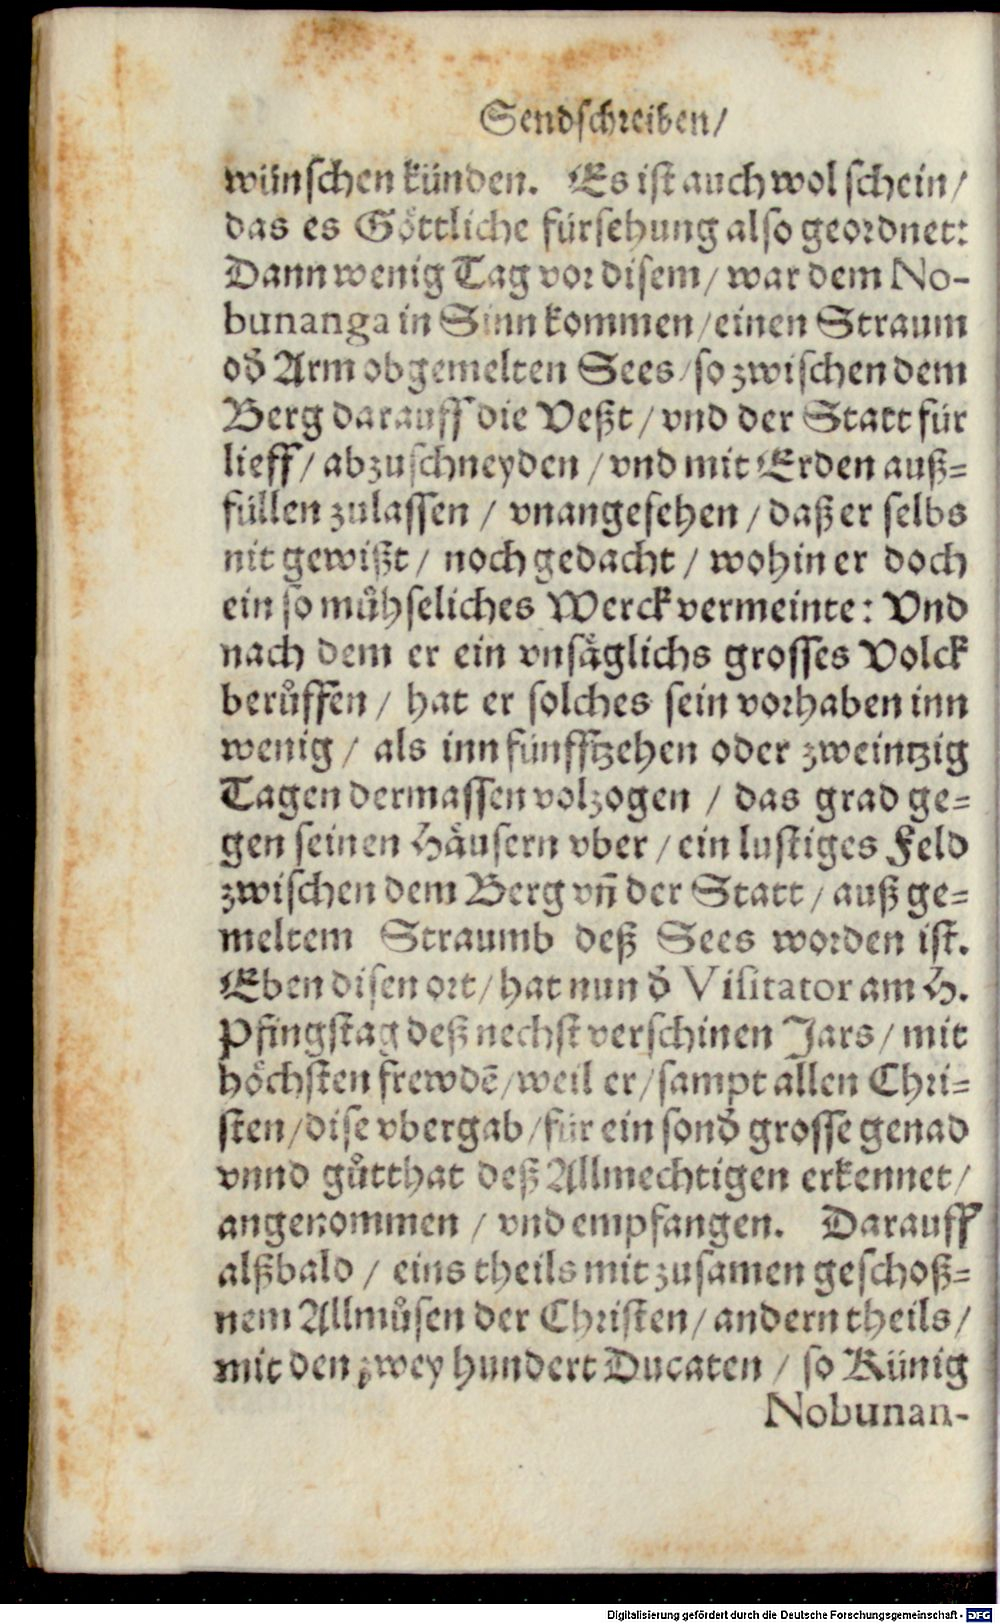 Sendschreiben/
wünschen künden. Es ist auch wol schein/
das es Göttliche fürsehung also geordnet:
Dann wenig Tag vor disem/ war dem No-
bunanga in Sinn kommen/ einen Straum
od̃ Arm obgemelten Sees/ so zwischen dem
Berg darauff die Veßt/ vnd der Statt für
lieff/ abzuschneyden/ vnd mit Erden auß-
füllen zulassen/ vnangesehen/ daß er selbs
nit gewißt/ noch gedacht/ wohin er doch
ein so mühseliches Werck vermeinte: Vnd
nach dem er ein vnsäglichs grosses Volck
berůffen/ hat er solches sein vorhaben inn
wenig/ als inn fünfftzehen oder zweintzig
Tagen dermassen volzogen/ das grad ge-
gen seinen Häusern vber/ ein lustiges Feld
zwischen dem Berg vñ der Statt/ auß ge-
meltem Straumb deß Sees worden ist.
Eben disen ort/ hat nun d̃ Visitator am H.
Pfingstag deß nechst verschinen Jars/ mit
höchsten frewdẽ/ weil er/ sampt allen Chri-
sten/ dise vbergab/ für ein sond̃ grosse genad
vnnd gůtthat deß Allmechtigen erkennet/
angenommen/ vnd empfangen. Darauff
alßbald/ eins theils mit zusamen geschoß-
nem Allmůsen der Christen/ andern theils/
mit den zwey hundert Ducaten/ so Künig
Nobunan-
Digitalisierung gefördert durch die Deutsche Forschungsgemeinschaft - DFG